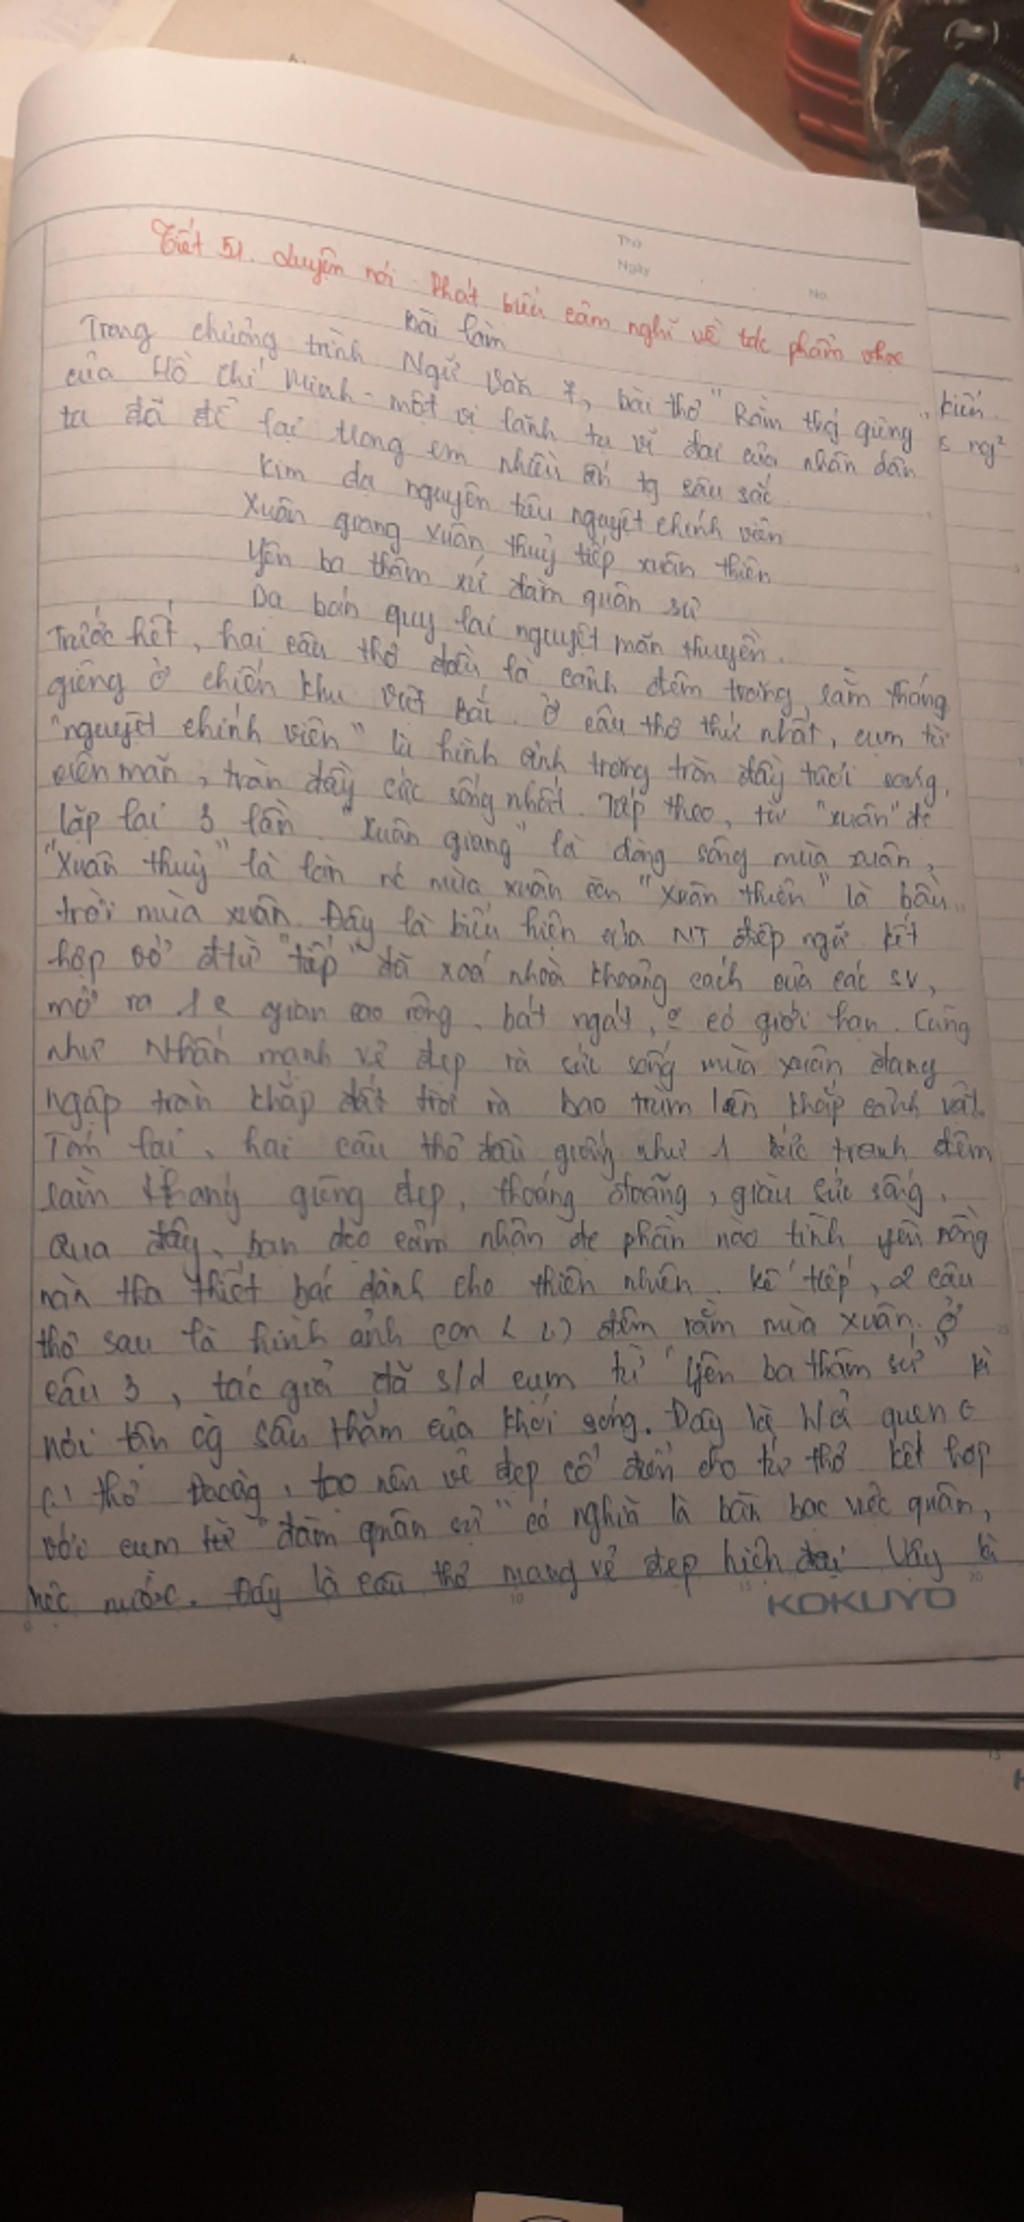 Thứ
Ngày
No.
Tiết 51. Luyện nói Phát biểu cảm nghĩ về tác phẩm vhọc
Bài làm
Trong chương trình Ngữ Văn 7, bài thơ "Rằm thg giêng"
của Hồ Chí Minh - một vị lãnh tụ vĩ đại của nhân dân
ta đã để lại trong em nhiều ấn tg sâu sắc.
Kim dạ nguyên tiêu nguyệt chính viên
Xuân giang xuân thuỷ tiếp xuân thiên
Yên ba thâm xứ đàm quân sự
Dạ bán quy lai nguyệt mãn thuyền.
Trước hết, hai câu thơ đầu là cảnh đêm trăng rằm tháng
giêng ở chiến khu Việt Bắc. Ở câu thơ thứ nhất, cụm từ
"nguyệt chính viên" là hình ảnh trăng tròn đầy tươi sáng,
viên mãn, tràn đầy sức sống nhất. Tiếp theo, từ "xuân" đc
lặp lại 3 lần. "Xuân giang" là dòng sông mùa xuân,
"Xuân thuỷ" là làn nc mùa xuân còn "Xuân thiên" là bầu
trời mùa xuân. Đây là biểu hiện của NT điệp ngữ kết
hợp với đtừ "tiếp" đã xoá nhoà khoảng cách của các sv,
mở ra 1 gian cao rộng, bát ngát, có giới hạn. Cũng
như Nhấn mạnh vẻ đẹp và sức sống mùa xuân đang
ngập tràn khắp đất trời và bao trùm lên khắp cảnh vật.
Tóm lại, hai câu thơ đầu giống như 1 bức tranh đêm
rằm tháng giêng đẹp, thoáng đoãng, giàu sức sống.
Qua đây, bạn đọc cảm nhận đc phần nào tình yêu nồng
nàn tha thiết bác dành cho thiên nhiên. Kế tiếp, 2 câu
thơ sau là hình ảnh con đêm rằm mùa xuân. Ở
câu 3, tác giả đã s/d cụm từ "Yên ba thâm xứ"
nơi tận cg sâu thẳm của khói sóng. Đây là quen
thơ Đg, tạo nên vẻ đẹp cổ điển cho tứ thơ kết hợp
với cụm từ "đàm quân sự" có nghĩa là bàn bạc việc quân,
việc nước. Đây là câu thơ mang vẻ đẹp hiện đại. Vậy
KOKUYO